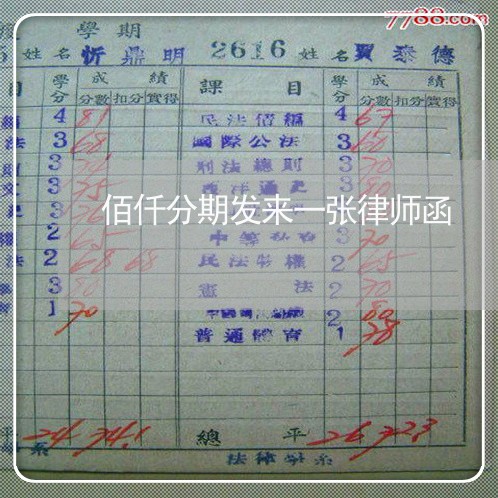 7788.com
學期
姓名 忻鼎明 2616 姓名 賈泰德
目 學分 成績 課目 學分 成績
分數 扣分 實得 分數 扣分 實得
4 81 民法債編 4 67
法 3 68 國際公法 3 60
3 刑法總則 3 70
3 75 西洋通史 3 80
佰仟分期发来一张律师函
2 65 3 70
法 2 68 68 民法物權 2 65
3 80 憲法 2 70
1 70 2 80
普通體育 1 78
平 24 74.1 總平 26 72.3
系 法律學系